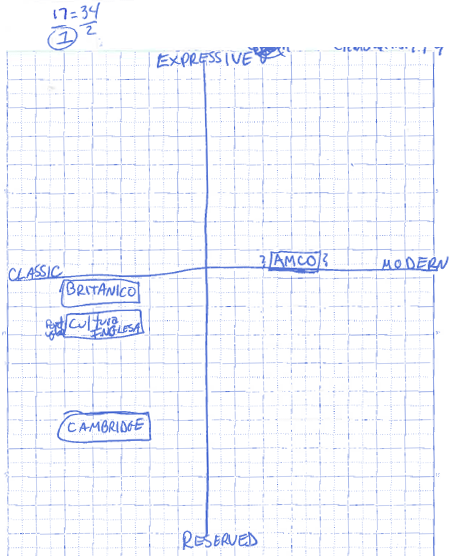 17 = 34
2
1
EXPRESSIVE
}AMCO{
CLASSIC
MODERN
BRITANICO
Cultura
INGLESA
CAMBRIDGE
RESERVED